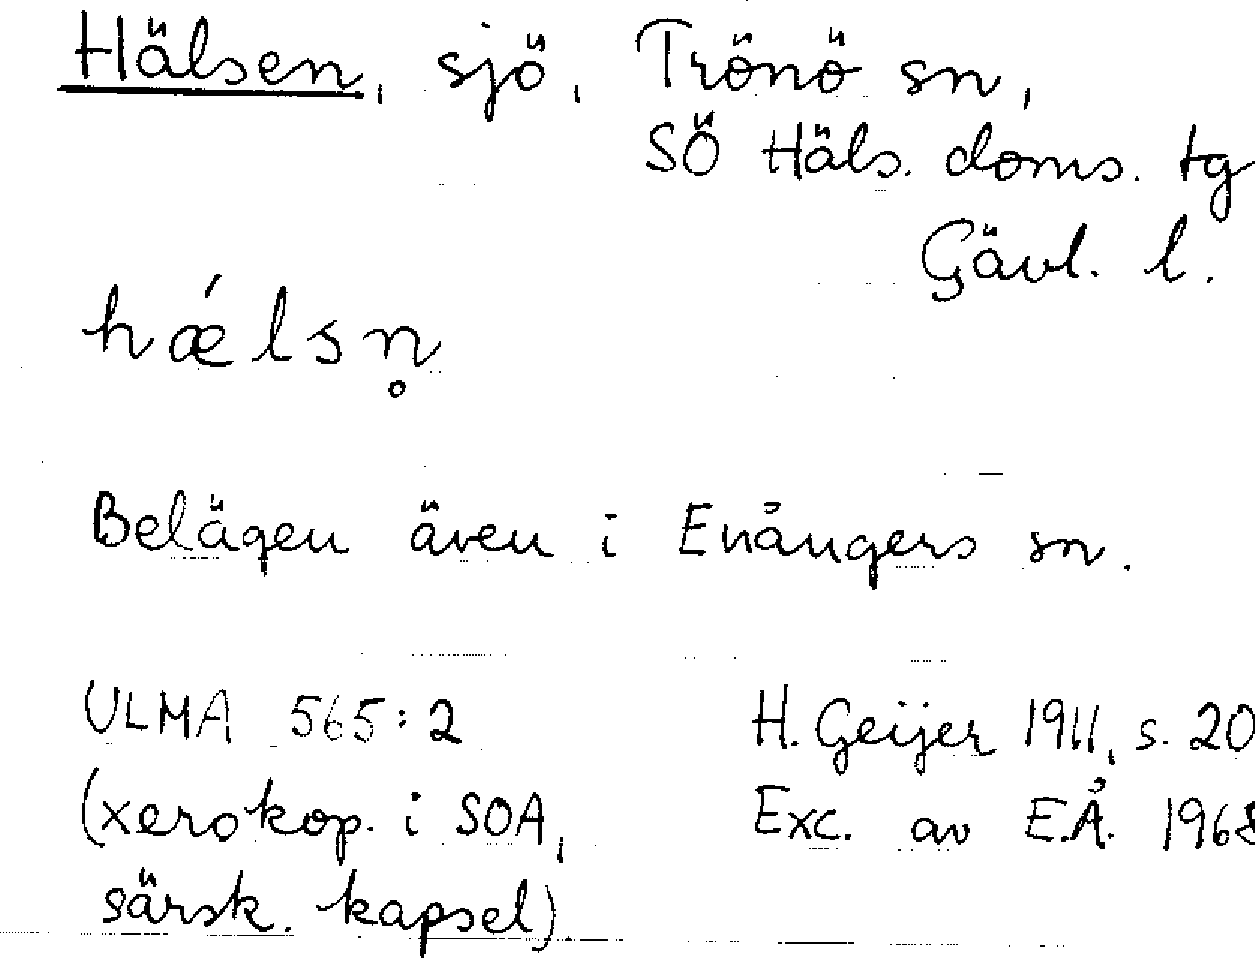 Hälsen, sjö, Trönö sn,
SÖ Häls. doms. tg
Gävl. l.
hǽlsn̥
Belägen även i Enångers sn.
ULMA 565:2 H. Geijer 1911, s. 20
(xerokop. i SOA, Exc. av E.Å. 1968
särsk. kapsel)